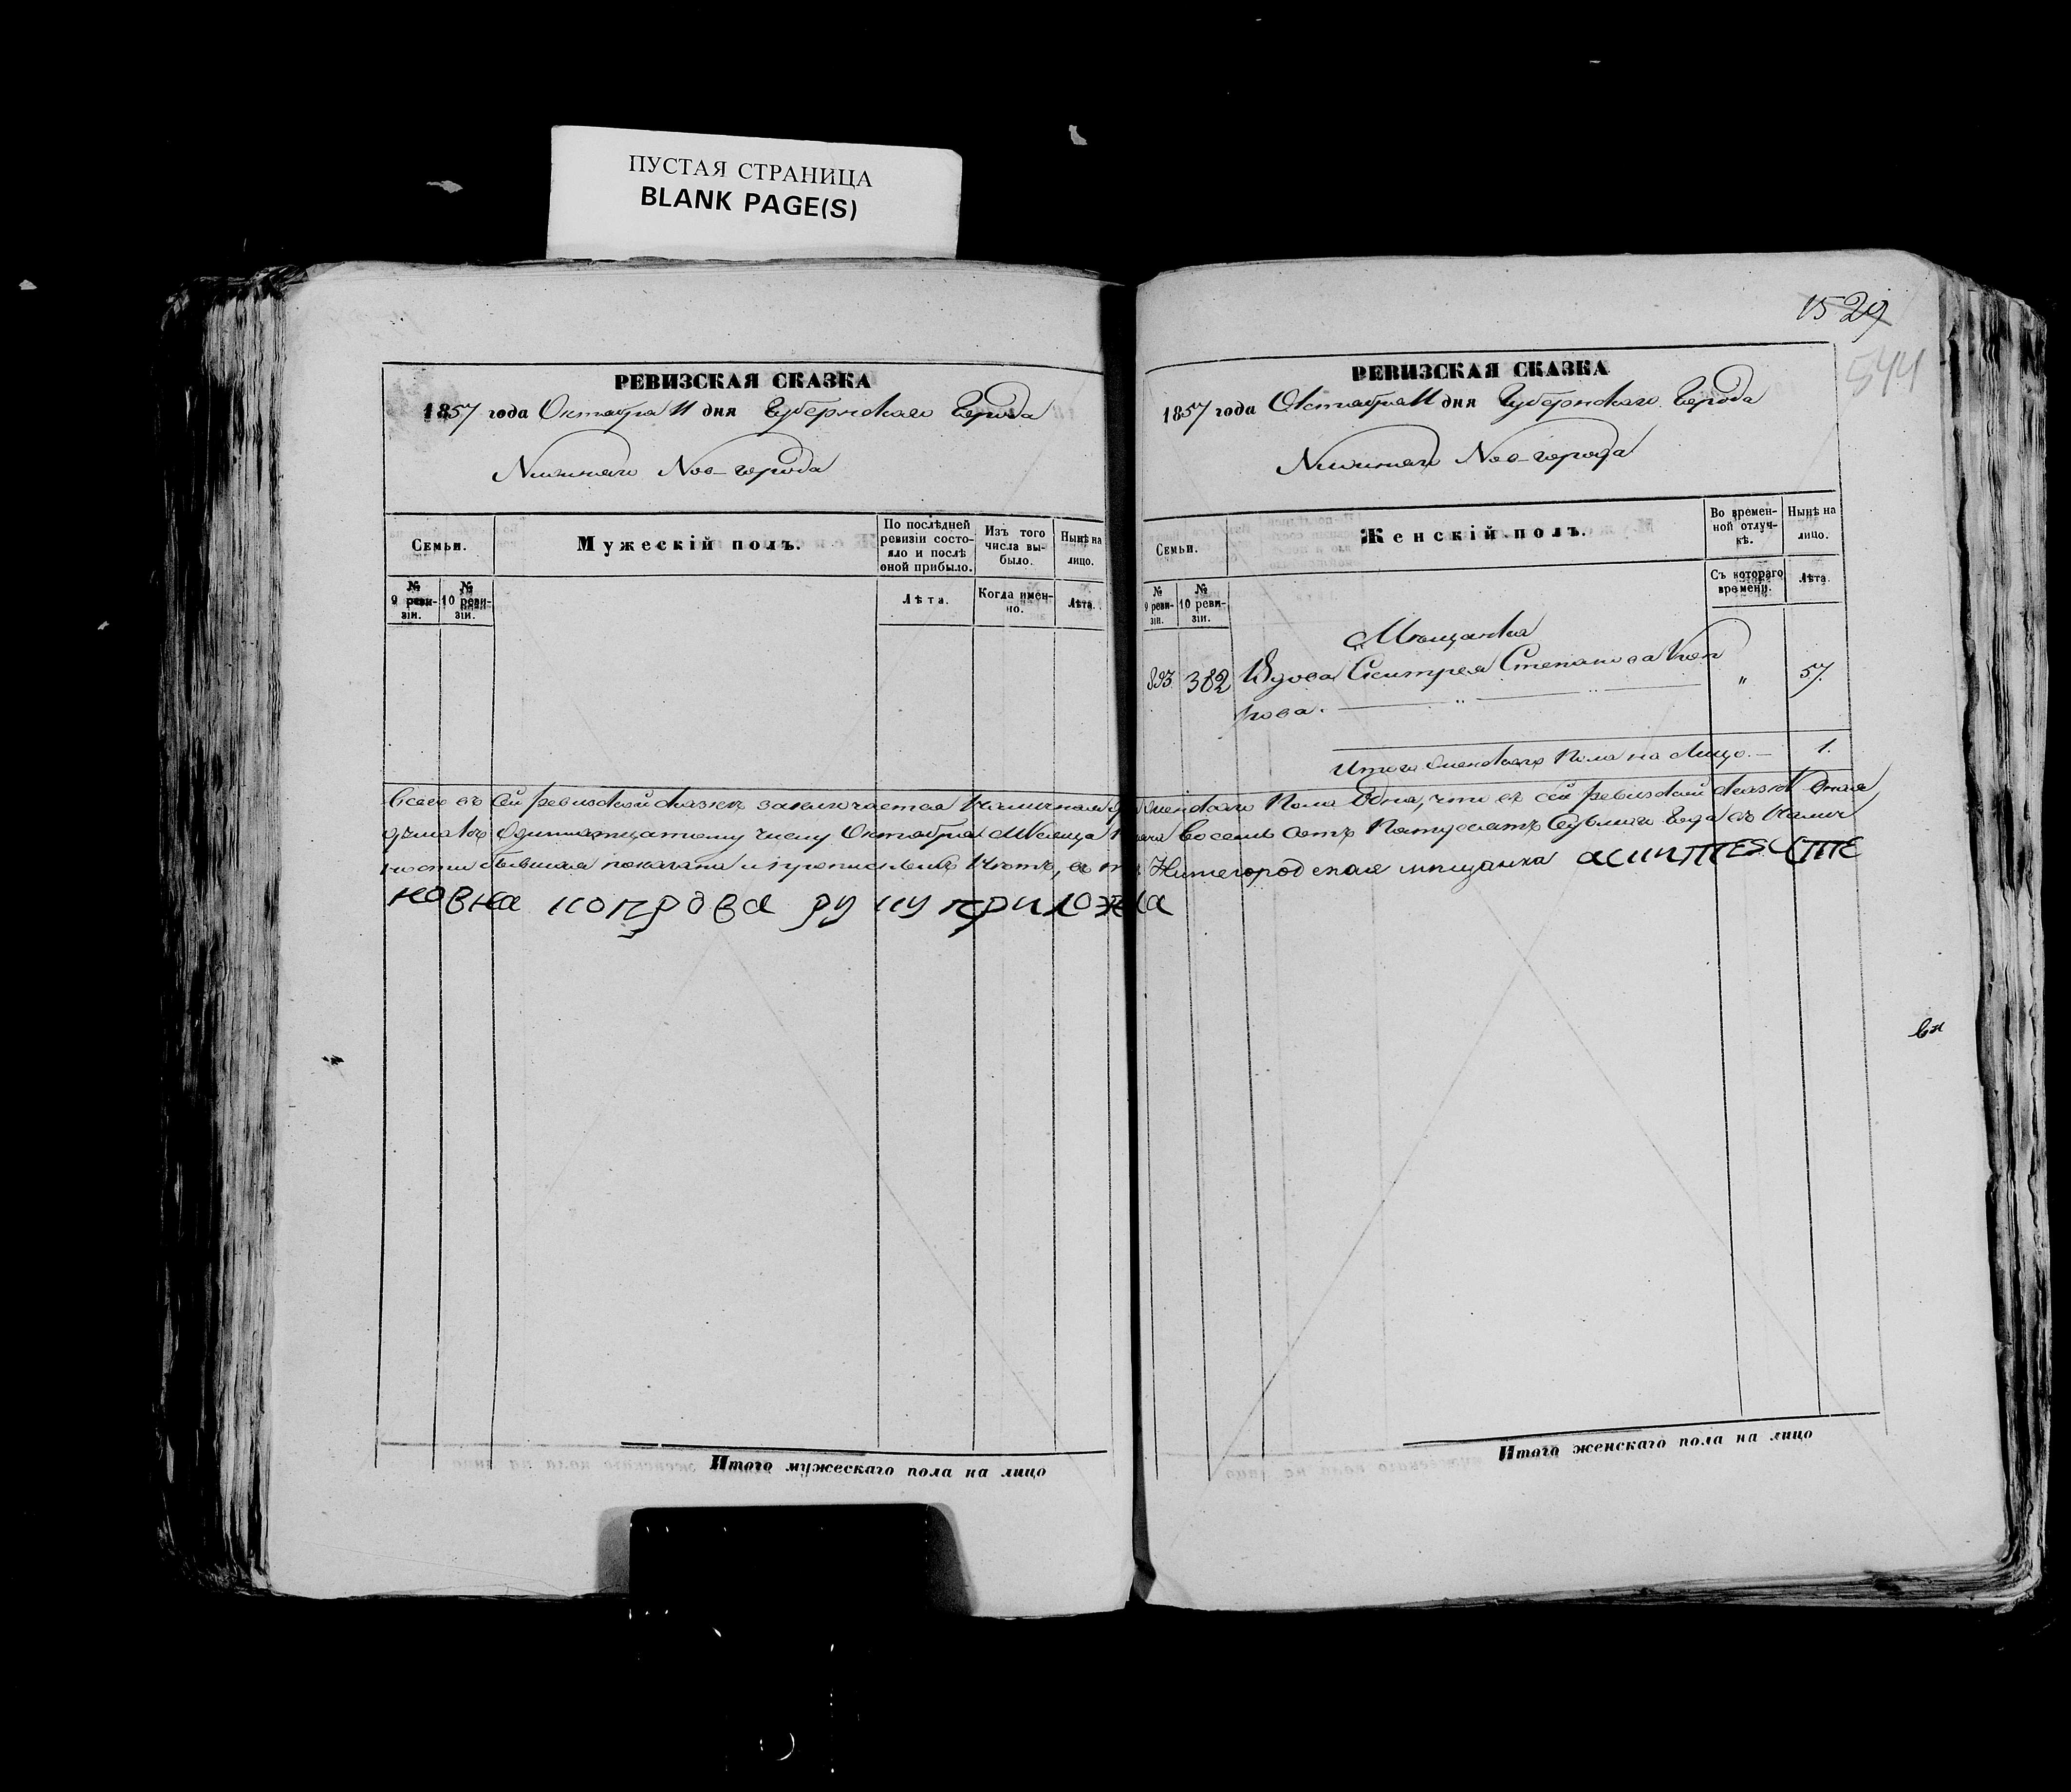 ПУСТАЯ СТРАНИЦА
BLANK PAGE(S)
РЕВИЗСКАЯ СКАЗКА
1857 года Октября 11 дня Губернскаго Города
Нижняго Нов-города
Семьи.
Мужескій полъ.
По послѣдней ревизіи состояло и послѣ оной прибыло.
Изъ того числа выбыло.
Нынѣ на лицо.
№ 9 ревизіи.
№ 10 ревизіи.
Лѣта.
Когда именно.
Лѣта.
Итого мужескаго пола на лицо
1529
544
РЕВИЗСКАЯ СКАЗКА
1857 года Октября 11 дня Губернскаго Города
Нижняго Нов-города
Семьи.
Женскій полъ.
Во временной отлучкѣ.
Нынѣ на лицо.
№ 9 ревизіи.
№ 10 ревизіи.
Съ котораго времени.
Лѣта.
Мѣщанка
893 382 Вдова Степанова Коп " 57.
рова.
Итого женскаго пола на лицо. 1.
Всего въ сей ревизской сказкѣ заключается наличная женскаго пола одна, что въ сей ревизской сказкѣ
одиннатцатому числу Октября Мѣсяца восемь сотъ пятдесятъ седьмаго года въ налич
ности бывшая показана и прописныхъ нѣтъ, въ Нижегородская мещанка СТПЕ
новна копрова руку приложла
Итого женскаго пола на лицо